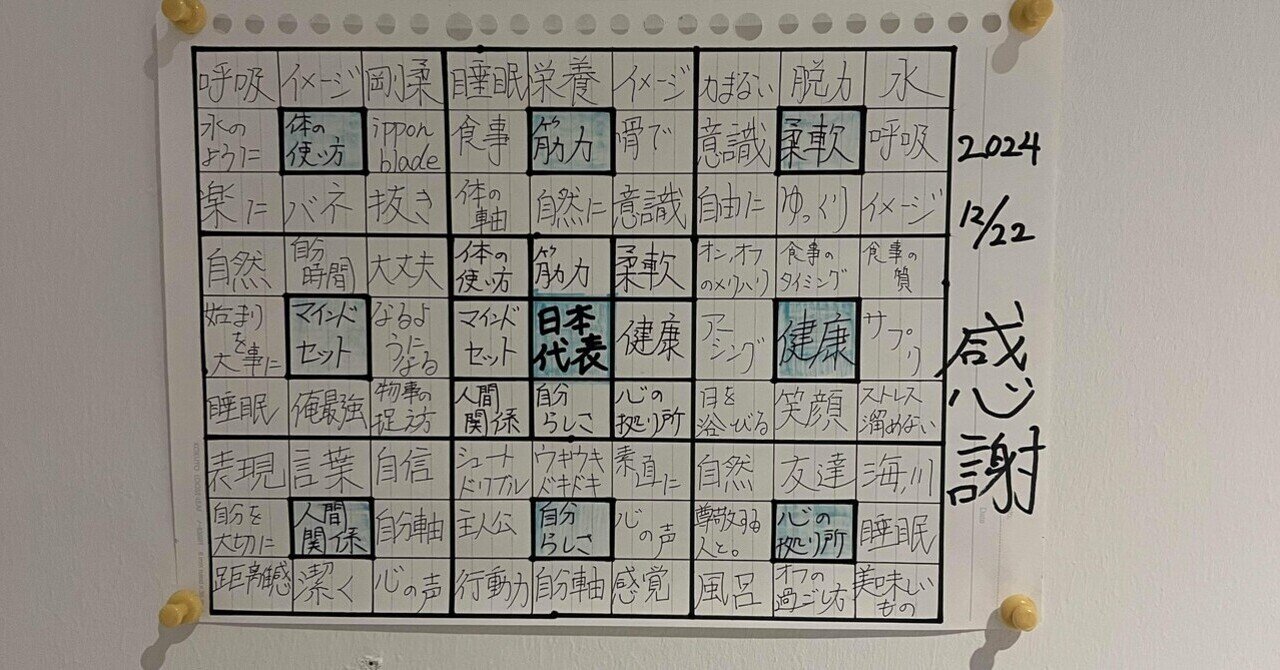 呼吸 イメージ 剛柔 睡眠 栄養 イメージ 力まない 脱力 水
水の
ように
体の
使い方
ippon
blade
食事
筋力
骨で
意識
柔軟
呼吸
楽に バネ 抜き
体の
軸
自然に 意識 自由に ゆっくり イメージ
自然
自分
時間
大丈夫
体の
使い方
筋力
柔軟
オン,オフ
のメリハリ
食事の
タイミング
食事の
質
始まり
を
大事に
マインド
セット
なるよ
うに
なる
マインド
セット
日本
代表
健康
アー
シング
健康
サプ
リ
睡眠
俺最強
物事の
捉え方
人間
関係
自分
らしさ
心の
拠り所
日を
浴びる
笑顔
ストレス
溜めない
表現 言葉 自信
シューナ
ドリブル
ウキウキ
ドキドキ
素直に
自然 友達 海,川
自分を
大切に
人間
関係
自分軸
主人公
自分
らしさ
心
の声
人と。
心の
拠り所
睡眠
距離感 潔く 心の声 行動力 自分軸 感覚 風呂
オフの
過ごし方
美味しい
もの
2024
12/22
感謝